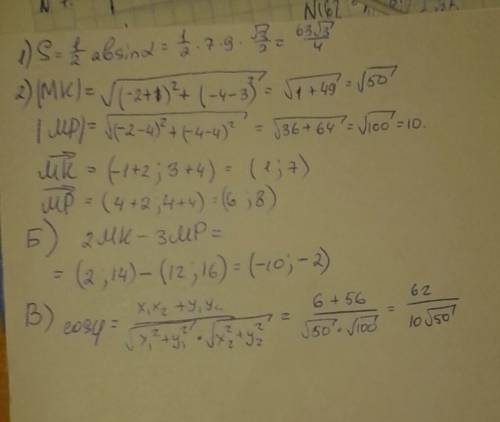 N162
1) S = 1/2 ab sinα = 1/2 · 7 · 9 · √3/2 = 63√3/4
2) |MK| = √((-2+1)² + (-4-3)²) = √(1+49) = √50
|MP| = √((-2-4)² + (-4-4)²) = √(36+64) = √100 = 10.
MK = (-1+2; 3+4) = (1; 7)
MP = (4+2; 4+4) = (6; 8)
Б) 2MK - 3MP =
= (2, 14) - (12; 16) = (-10; -2)
В) cosφ = (x₁x₂ + y₁y₂)/(√(x₁²+y₁²) · √(x₂²+y₂²)) = (6+56)/(√50 · √100) = 62/(10√50)